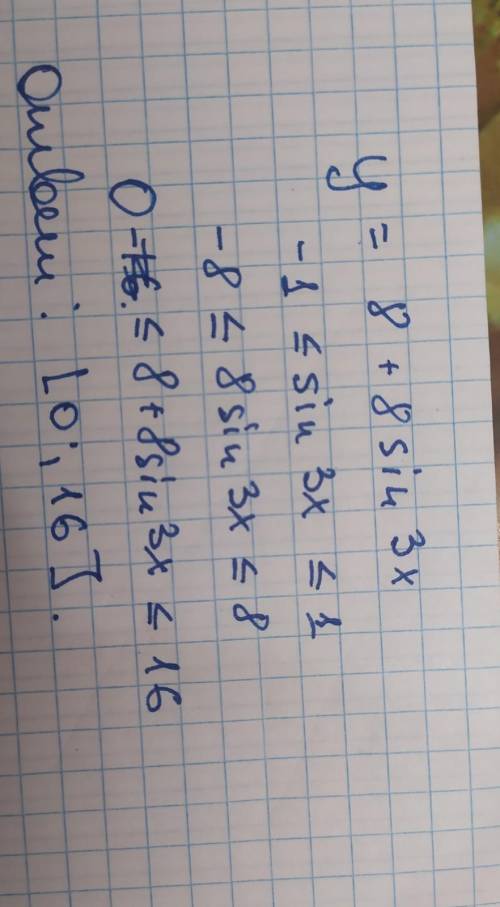 y = 8 + 8 sin 3x
-1 ≤ sin 3x ≤ 1
-8 ≤ 8 sin 3x ≤ 8
0 ≤ 8 + 8 sin 3x ≤ 16
Ответ: [0; 16].